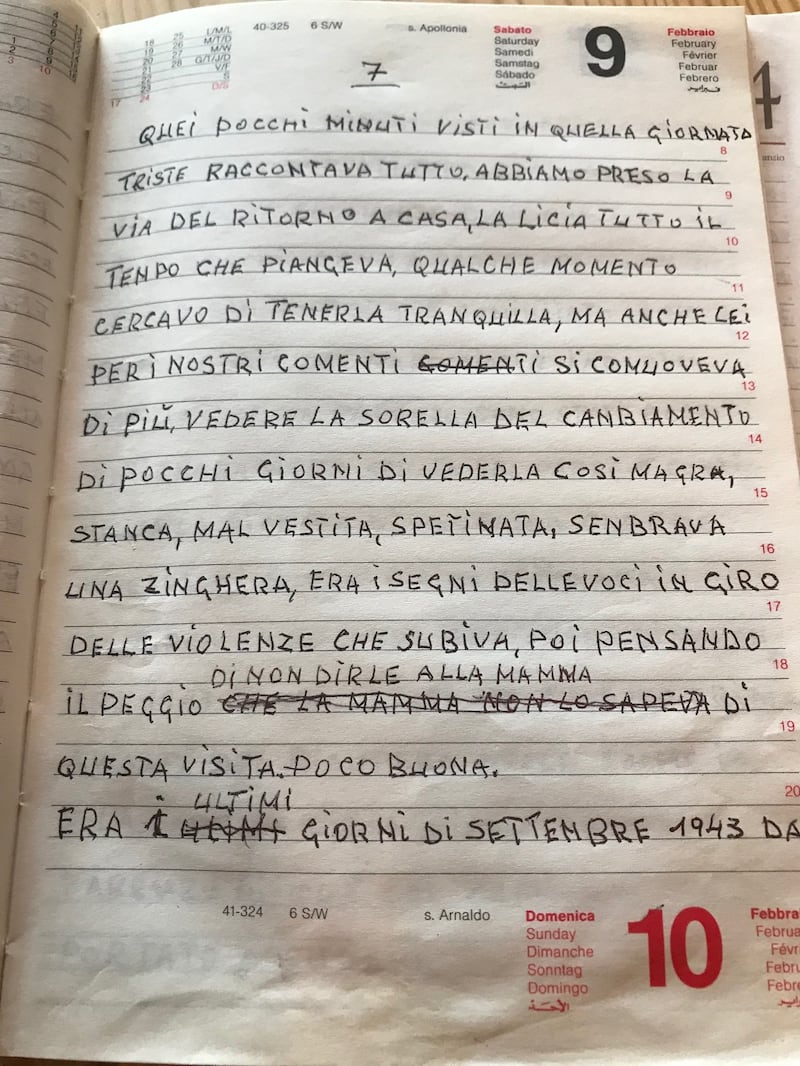 40-325 6 S/W s. Apollonia Sabato 9 Febbraio
Saturday February
Samedi Février
Samstag Februar
Sábado Febrero
السبت فبراير
18 25 L/M/L
19 26 M/T/D
20 27 M/W
21 28 G/T/J/D
22 V/F
23 S
17 24 D/S
7
QUEI POCCHI MINUTI VISTI IN QUELLA GIORNATA
8
TRISTE RACCONTAVA TUTTO, ABBIAMO PRESO LA
9
VIA DEL RITORNO A CASA, LA LICIA TUTTO IL
10
TENPO CHE PIANGEVA, QUALCHE MOMENTO
11
CERCAVO DI TENERLA TRANQUILLA, MA ANCHE LEI
12
PER I NOSTRI COMENTI COMENTI SI COMUOVEVA
13
DI PIÙ, VEDERE LA SORELLA DEL CANBIAMENTO
14
DI POCCHI GIORNI DI VEDERLA COSÌ MAGRA,
15
STANCA, MAL VESTITA, SPETINATA, SENBRAVA
16
UNA ZINGHERA, ERA I SEGNI DELLE VOCI IN GIRO
17
DELLE VIOLENZE CHE SUBIVA, POI PENSANDO
18
DI NON DIRLE ALLA MAMMA
IL PEGGIO CHE LA MAMMA NON LO SAPEVA DI
19
QUESTA VISITA POCO BUONA.
20
ULTIMI
ERA I ULTIMI GIORNI DI SETTEMBRE 1943 DA
41-324 6 S/W s. Arnaldo Domenica 10 Febbra
Sunday Februa
Dimanche Févri
Sonntag Febru
Domingo Febre
الأحد